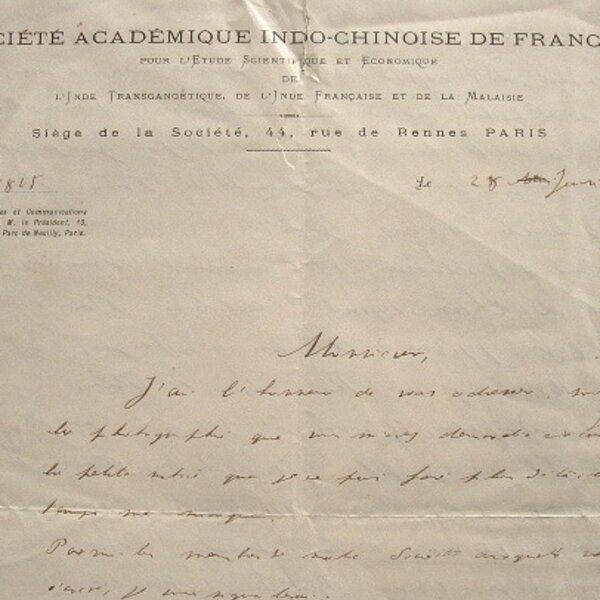 CIÉTÉ ACADÉMIQUE INDO-CHINOISE DE FRANC
POUR L'ETUDE SCIENTIFIQUE ET ECONOMIQUE
DE
L'INDE TRANSGANGÉTIQUE, DE L'INDE FRANÇAISE ET DE LA MALAISIE
Siège de la Société, 44, rue de Rennes PARIS
Le 28
es et Communications
M. le Président, 13,
Parc de Neuilly, Paris.
Monsieur,
J'ai l'honneur de vous adresser,
la photographie que vous m'avez demandée
la petite notice que je ne puis faire plus
temps me manque.
Parmi les membres de notre Société auxquels